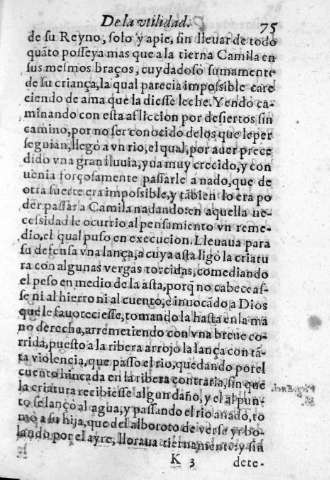 De la vtilidad. 75
de su Reyno, solo y apie, sin lleuar de todo
quãto posseya mas que a la tierna Camila en
sus mesmos braços, cuydadoso sumamente
de su criança, la qual parecia impossible care
ciendo de ama que la diesse leche. Yendo ca-
minando con esta afliccion por desiertos sin
camino, por no ser conocido de los que le per
seguian, llegò a vn rio, el qual, por auer prece
dido vna gran lluuia, yua muy crecido, y con
uenia forçosamente passarle a nado, que de
otra suerte era impossible, y tãbien lo era po
der passar a Camila nadando: en aquella ne-
cessidad le ocurrio al pensamiento vn reme-
dio, el qual puso en execucion. Lleuaua para
su defensa vna lança, a cuya asta ligò la criatu
ra con algunas vergas torcidas, comediando
el peso en medio de la asta, porq̃ no cabeceas-
se ni al hierro ni al cuento, e inuocado a Dios
que le fauoreciesse, tomando la hasta en la ma
no derecha, arremetiendo con vna breue co-
rrida, puesto a la ribera arrojò la lança con tã-
ta violencia, que passò el rio, quedando por el
cuento hincada en la ribera contraria, sin que
la criatura recibiesse algun daño, y el al pun-
to se lançò al agua, y passando el rio a nado, to
mò a su hija, que del alboroto de verse yr bo-
lando por el ayre, lloraua tiernamente: y sin
K 3 dete-